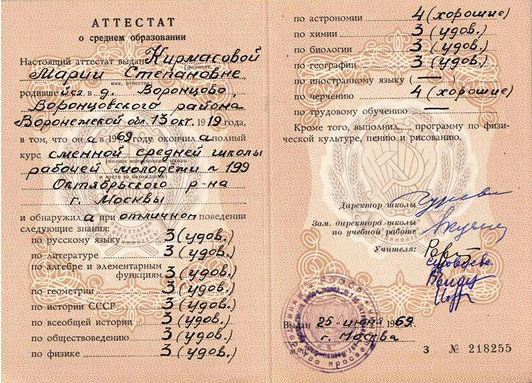 АТТЕСТАТ
о среднем образовании
Настоящий аттестат выдан Кирмасовой
Марии Степановне
родившейся в д. Воронцово,
Воронцовского района
Воронежской обл. 13 окт. 1919 года,
в том, что она в 1969 году окончила полный
курс сменной средней школы
рабочей молодёжи № 199
Октябрьского р-на
г. Москвы
и обнаружила при отличном поведении
следующие знания:
по русскому языку 3 (удов.)
по литературе 3 (удов.)
по алгебре и элементарным
функциям 3 (удов.)
по геометрии 3 (удов.)
по истории СССР 3 (удов.)
по всеобщей истории 3 (удов.)
по обществоведению 3 (удов.)
по физике 3 (удов.)
по астрономии 4 (хорошие)
по химии 3 (удов.)
по биологии 3 (удов.)
по географии 3 (удов.)
по иностранному языку ( — )
по черчению 4 (хорошие)
по трудовому обучению —
Кроме того, выполнил программу по физи-
ческой культуре, пению и рисованию.
Директор школы
Зам. директора школы
по учебной работе
Учителя:
Выдан 25 июня 1969 г.
г. Москва
З № 218255